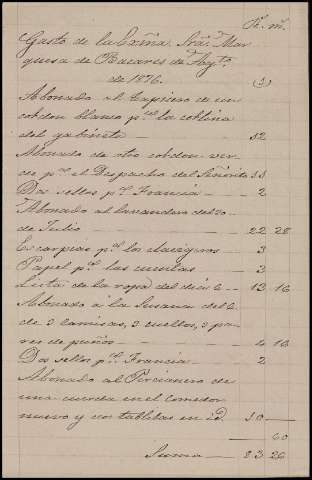 Rs. ms.
Gasto de la Exma. Sra. Mar
quesa de Bacares de Agto.
de 1876. (1)
Abonado al tapicero de un
cordon blanco pa. la cortina
del gabinete 32
Abonado de otro cordon ver
de pa. el Despacho del Señorito
Dos sellos pa. Francia 2
Abonado al lavandero del 30
de Julio 22 28
Escarpias pa. los
Papel pa. las cuentas 3
Lista de la ropa del dia 6 13 16
Abonado á la Susana del 6
de 3 camisas, 3 cuellos, 3 pa
res de puños 4 16
Dos sellos pa. Francia 2
Abonado al Persianero de
una cuerda en el comedor
nuevo y dos tablitas en id. 10
60
Suma